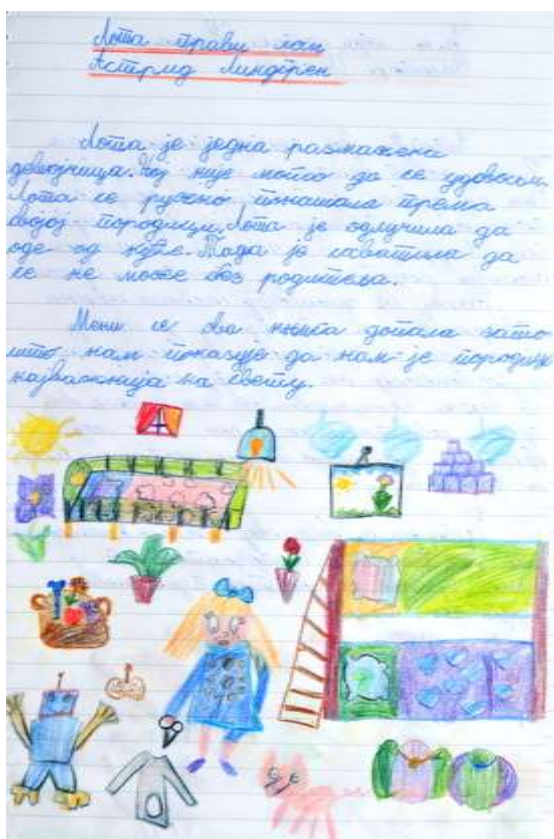 Лота прави лом
Астрид Линдгрен
Лота је једна размажена
девојчица. Њој није могло да се удовољи.
Лота се ружно понашала према
својој породици. Лота је одлучила да
оде од куће. Тада је схватила да
се не може без родитеља.
Мени се ова књига допала зато
што нам показује да нам је породица
најважнија на свету.